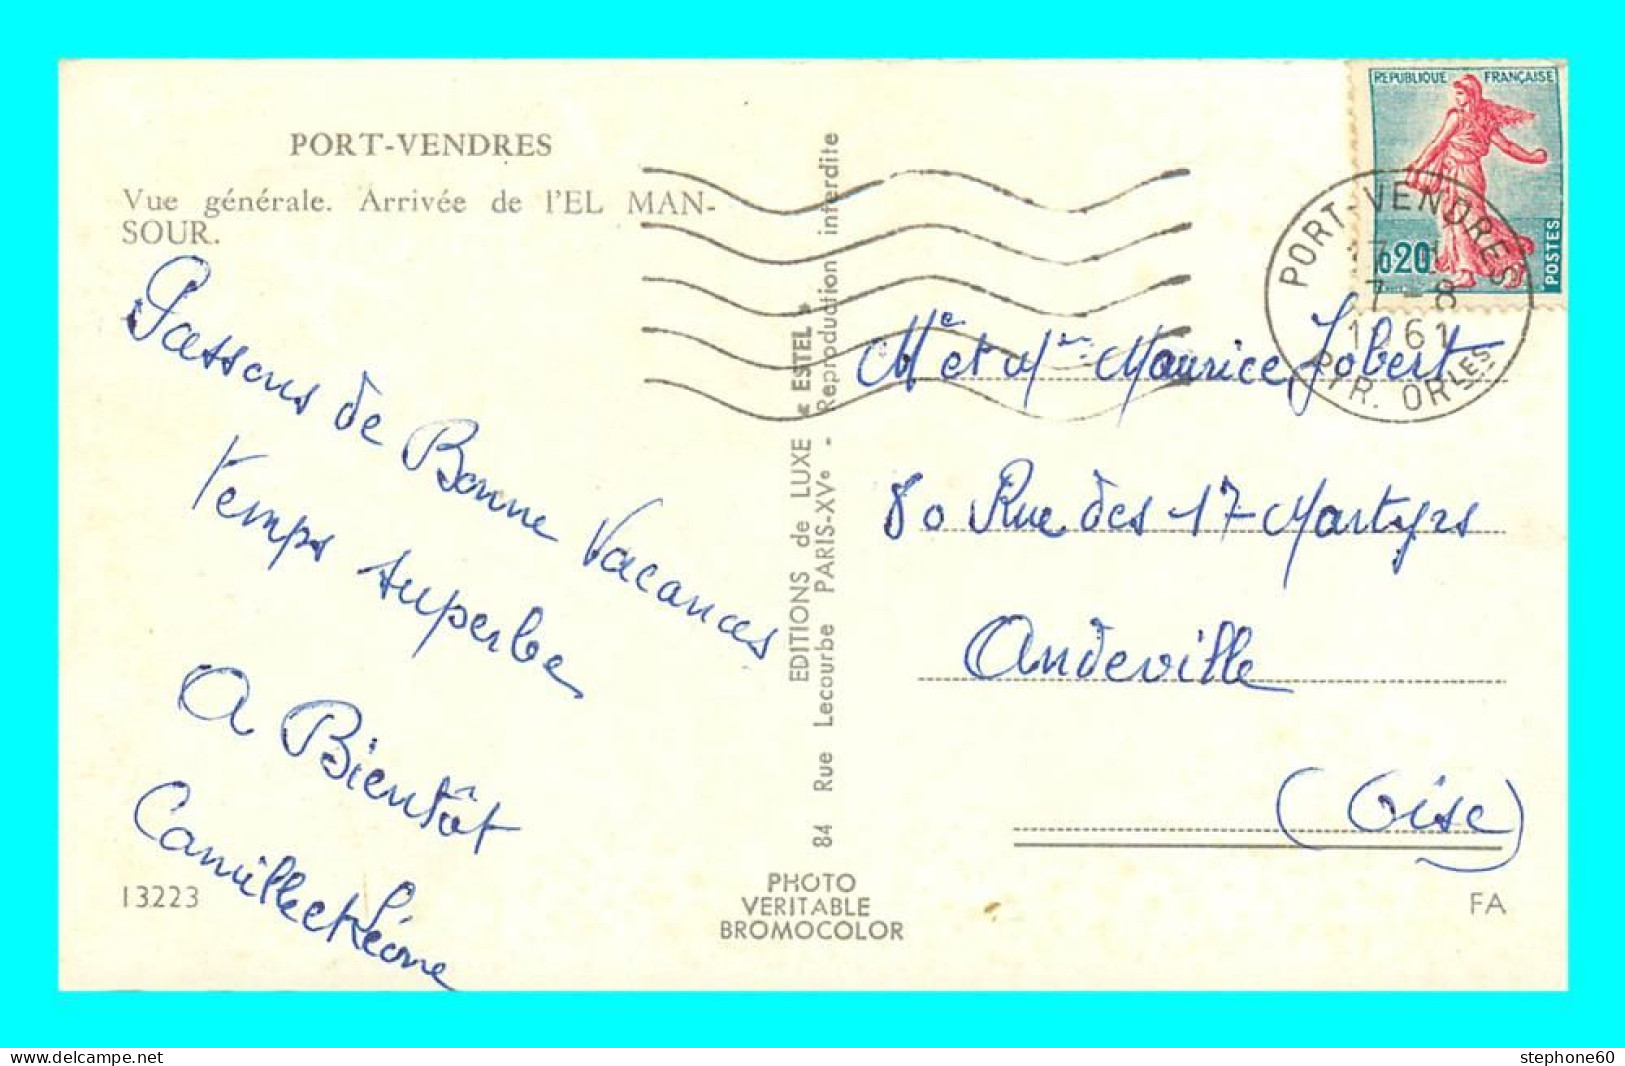 PORT-VENDRES
Vue générale. Arrivée de l'EL MAN-
SOUR.
Passons de Bonne Vacances
temps superbe
A Bientôt
Camille et Léone
13223
EDITIONS de LUXE « ESTEL »
84 Rue Lecourbe PARIS-XVe - Reproduction interdite
PHOTO
VERITABLE
BROMOCOLOR
REPUBLIQUE FRANÇAISE
0,20
POSTES
PORT-VENDRES
7 - 8
1961
PYR. ORLES
Mr et Mme Maurice Jobert
80 Rue des 17 Martyrs
Andeville
(Oise)
FA
www.delcampe.net
stephone60